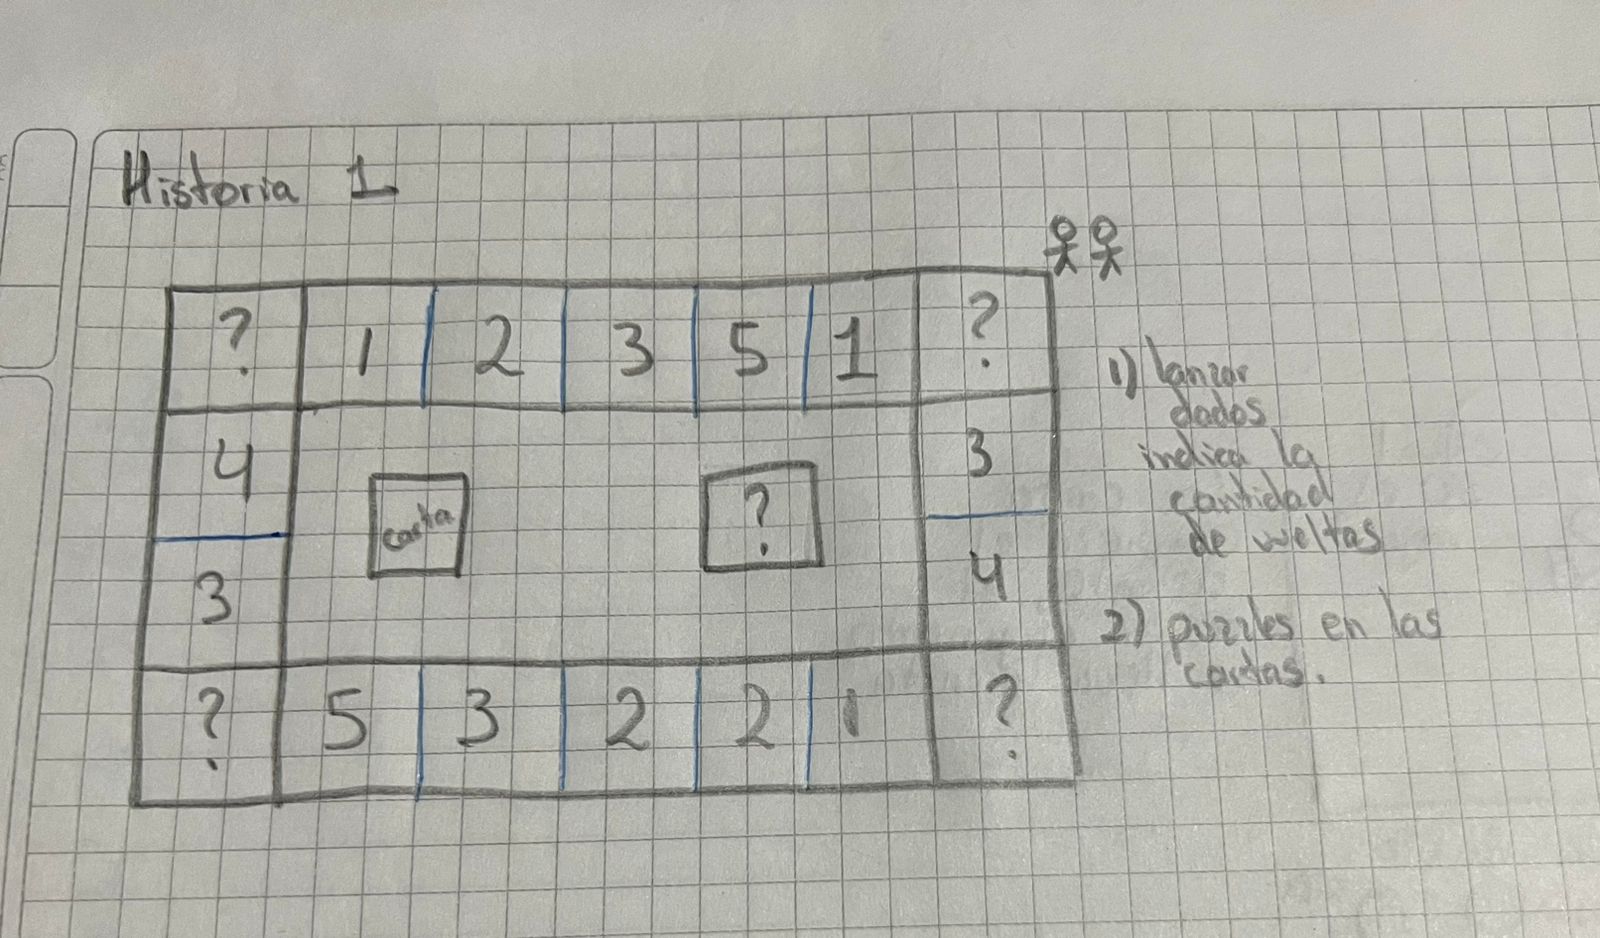 Historia 1
? 1 2 3 5 1 ?
4 3
carta ?
3 4
? 5 3 2 2 1 ?
1) lanzar
dados
indica la
cantidad
de vueltas
2) puzzles en las
cartas.